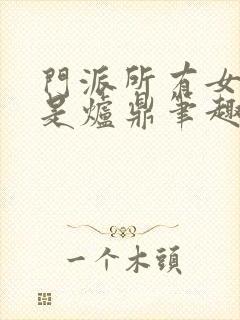 門派所有女
是爐鼎筆趣
一个木頭